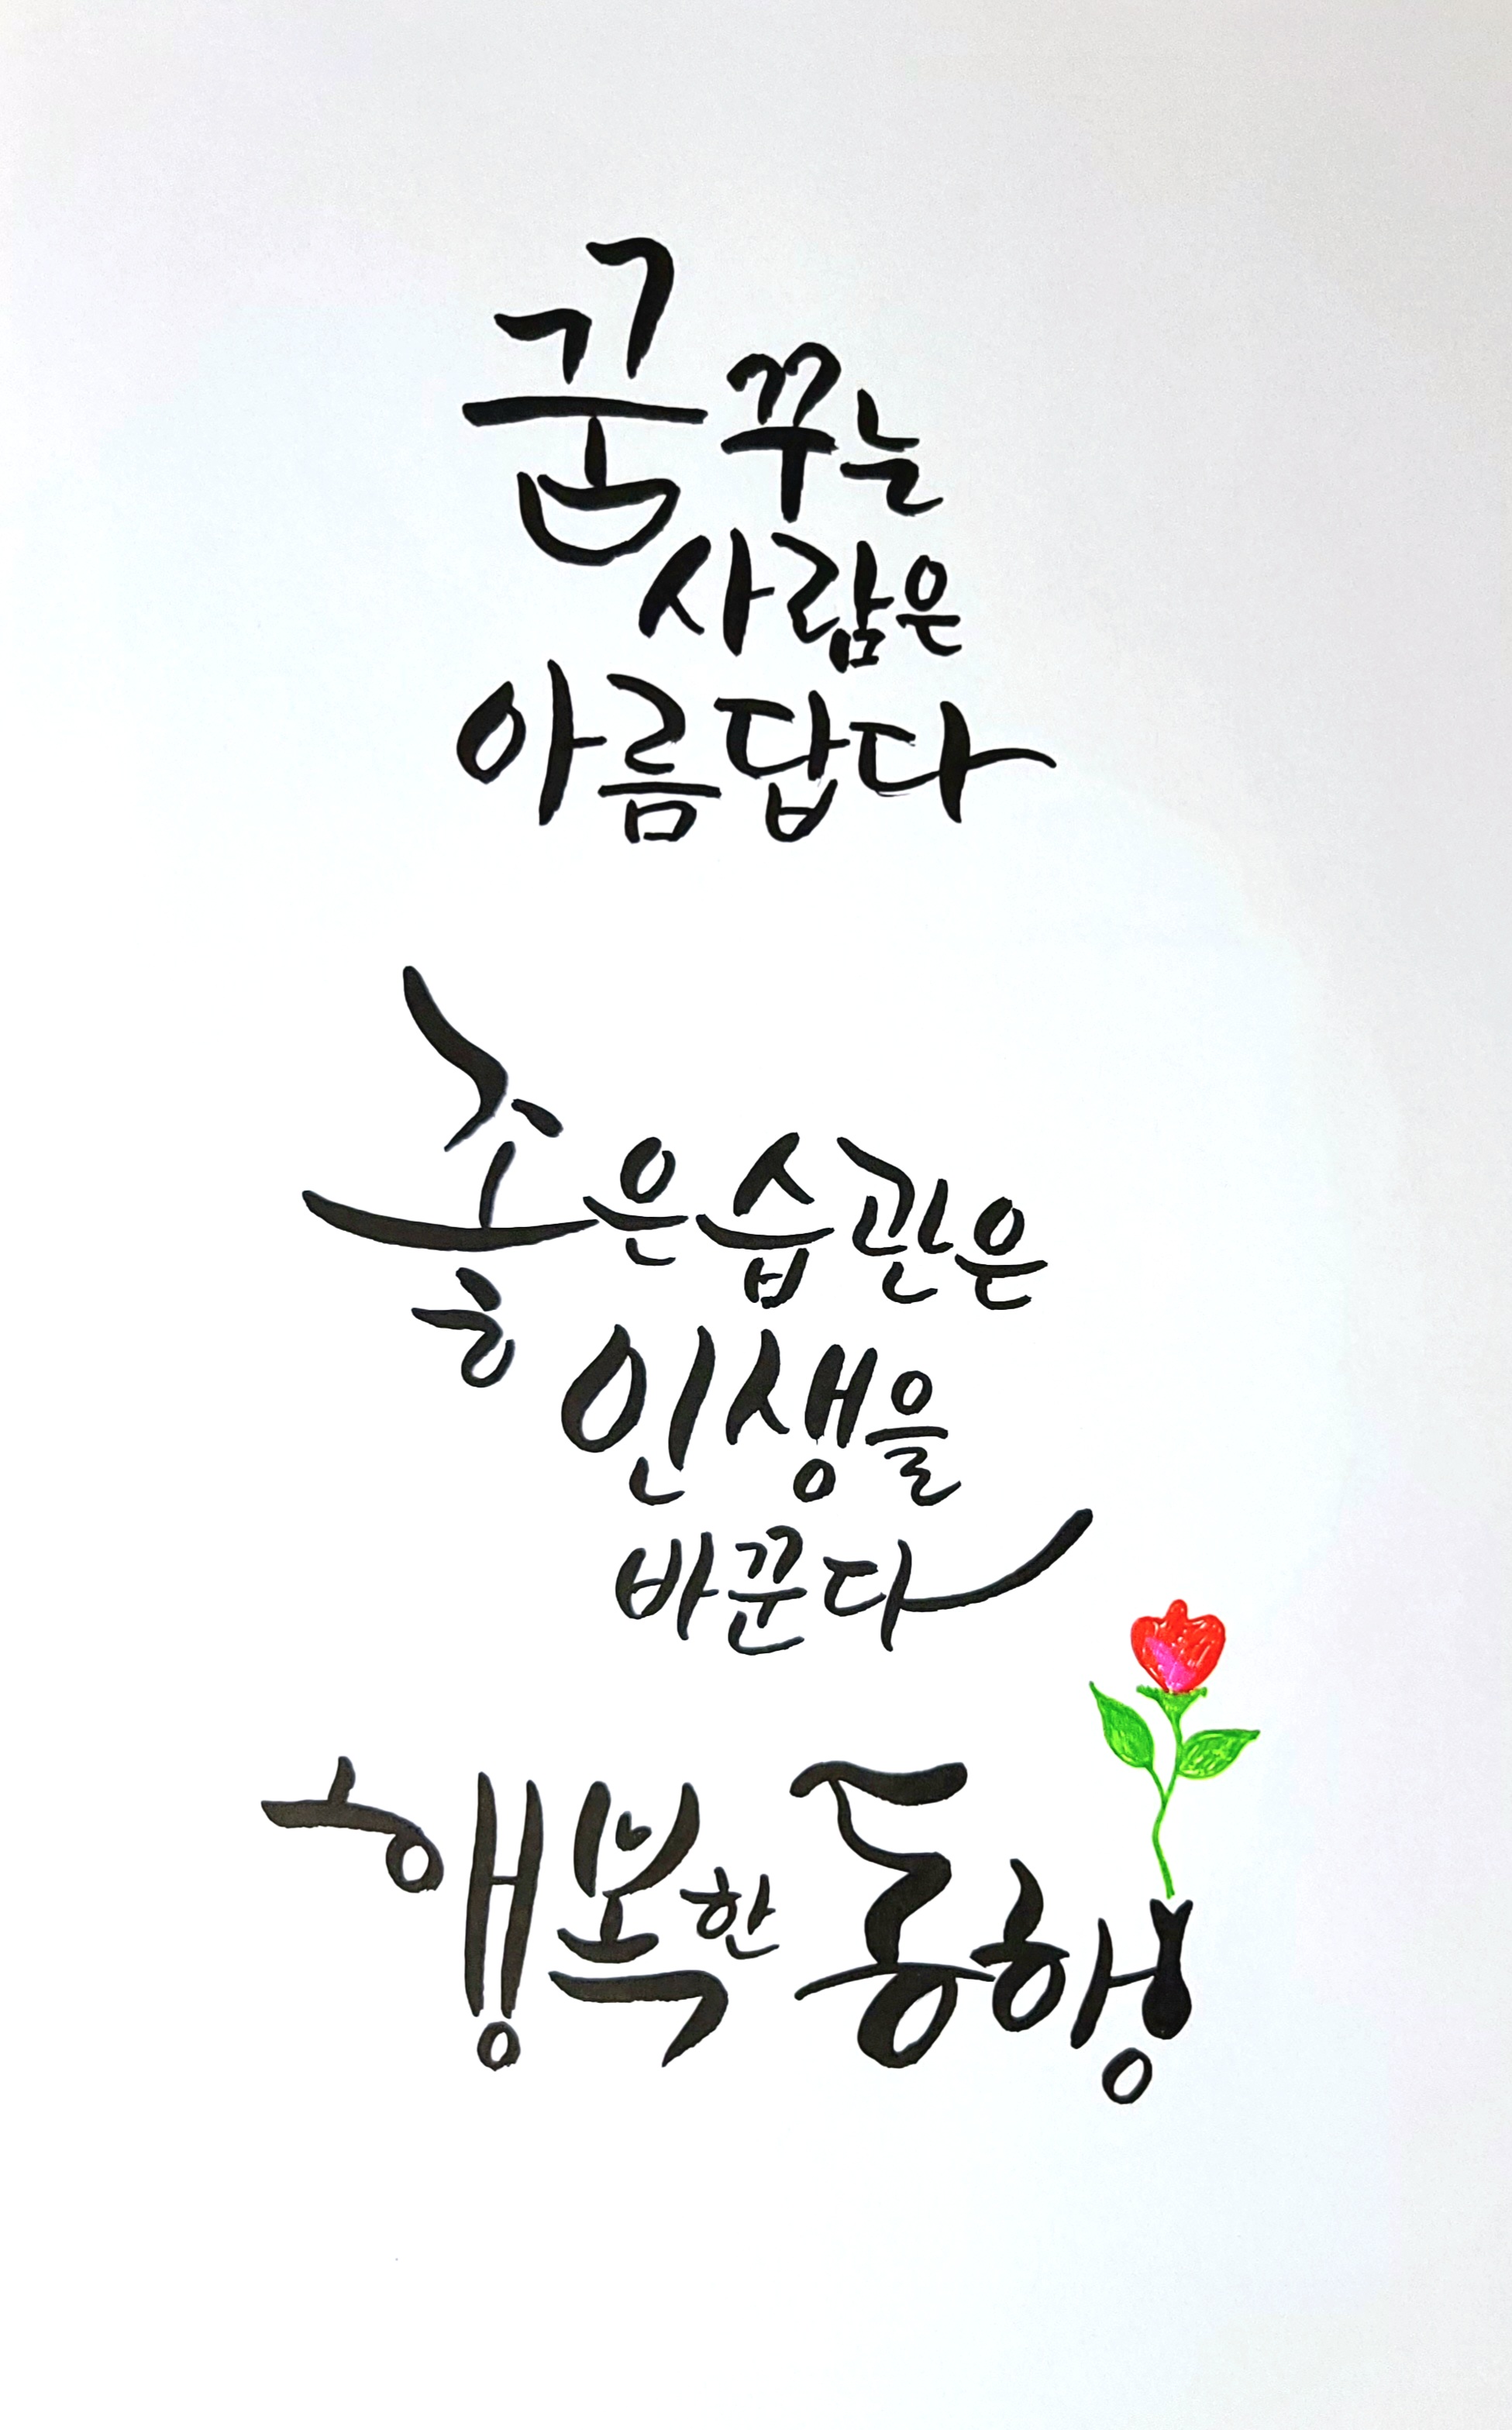 꿈꾸는
사람은
아름답다
좋은습관은
인생을
바꾼다
행복한 동행